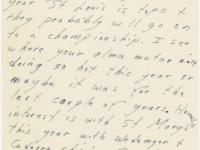 year St Louis is tops &
they probably will go on
to a championship. I see
where your alma mater
doing so hot this year or
maybe it was for the
last couple of years.
interest is with St Mary's
this year with Wedemeyer &